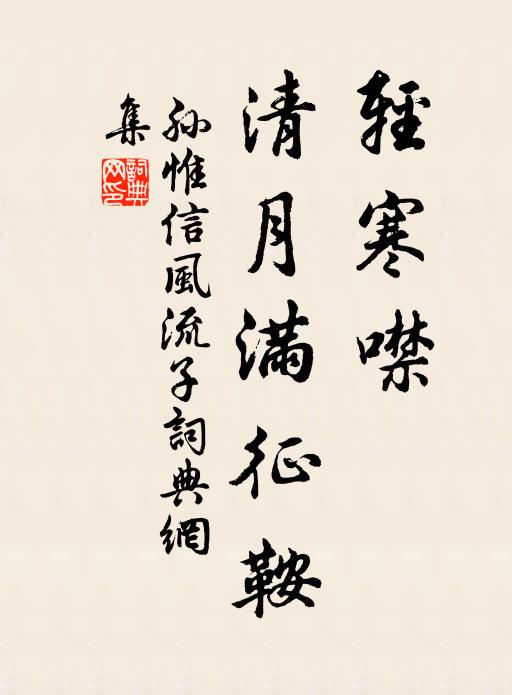 輕寒噤
清月滿征鞍
孫惟信風流子詞典網
集
詞典網印